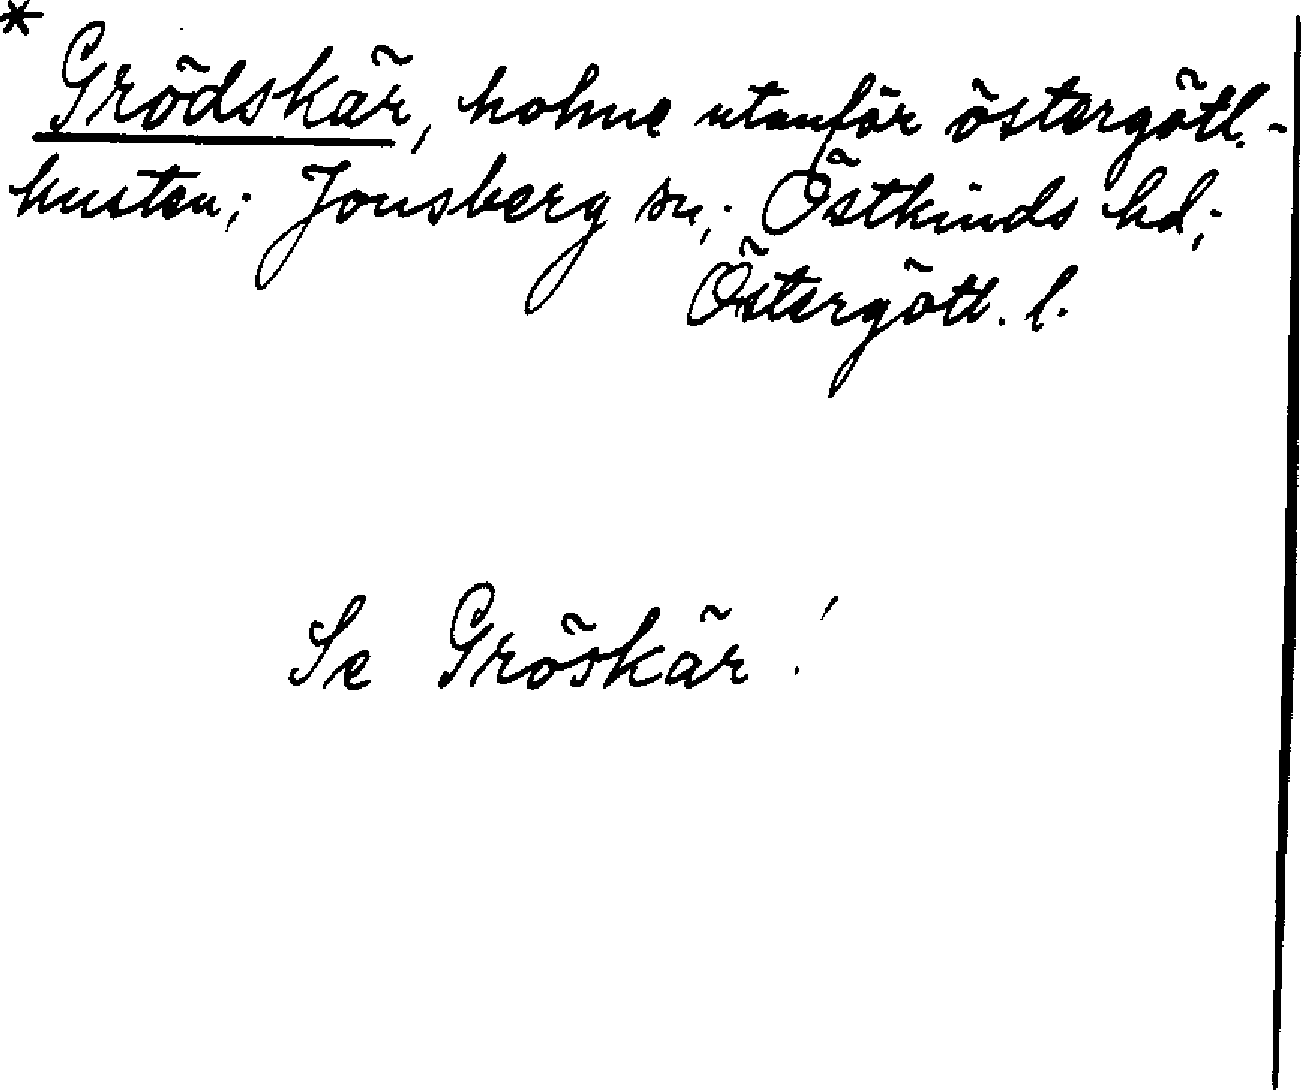 * Grödskär, holme utanför östergötl.-
kusten; Jonsberg sn,; Östkinds hd,;
Östergötl. l.
Se Gröskär!